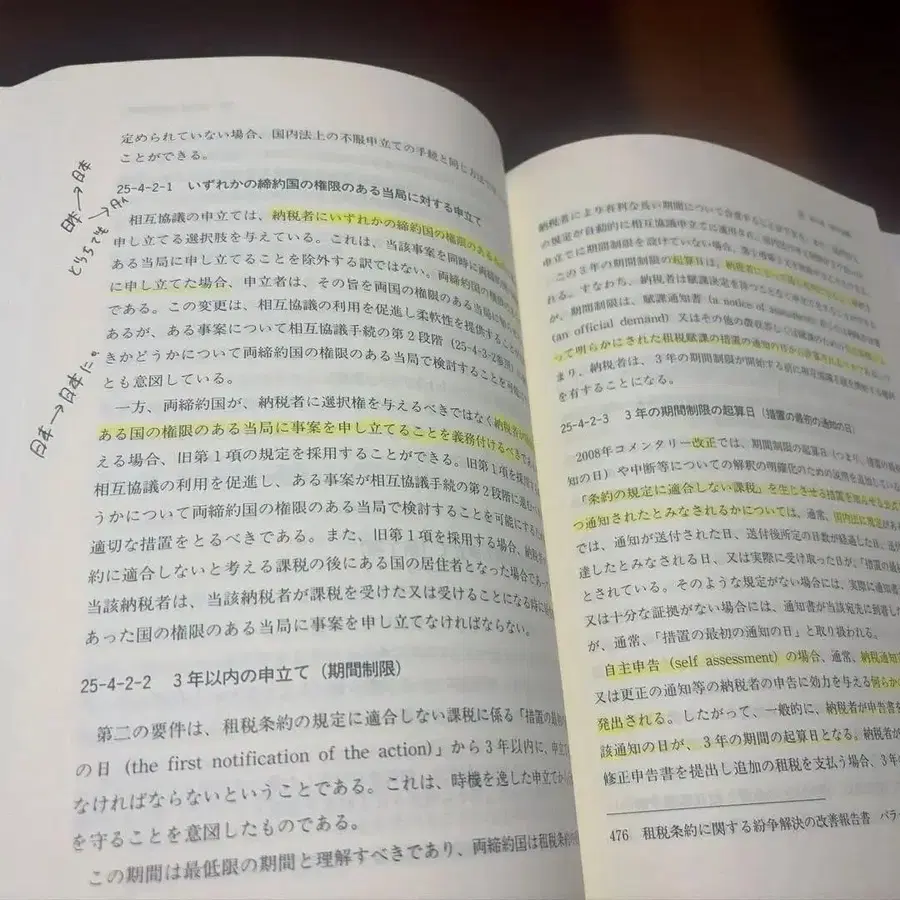 定められていない場合、国内法上の不服申立ての手続と同じ方法で
ことができる。
25-4-2-1 いずれかの締約国の権限のある当局に対する申立て
相互協議の申立ては、納税者にいずれかの締約国の権限のある
申し立てる選択肢を与えている。これは、当該事案を同時に両締約
ある当局に申し立てることを除外する訳ではない。両締約国の権限の
に申し立てた場合、申立者は、その旨を両国の権限のある当局に
である。この変更は、相互協議の利用を促進し柔軟性を提供すること
あるが、ある事案について相互協議手続の第2段階(25-4-3-2参照)
きかどうかについて両締約国の権限のある当局で検討することを
とも意図している。
一方、両締約国が、納税者に選択権を与えるべきではなく納税者
ある国の権限のある当局に事案を申し立てることを義務付けるべき
える場合、旧第1項の規定を採用することができる。旧第1項を採用する
相互協議の利用を促進し、ある事案が相互協議手続の第2段階に
うかについて両締約国の権限のある当局で検討することを可能にする
適切な措置をとるべきである。また、旧第1項を採用する場合、納税者
約に適合しないと考える課税の後にある国の居住者となった場合であっ
当該納税者は、当該納税者が課税を受けた又は受けることになる時に
あった国の権限のある当局に事案を申し立てなければならない。
25-4-2-2 3年以内の申立て(期間制限)
第二の要件は、租税条約の規定に適合しない課税に係る「措置の最初
の日 (the first notification of the action)」から3年以内に、申立
なければならないということである。これは、時機を逸した申立て
を守ることを意図したものである。
この期間は最低限の期間と理解すべきであり、両締約国は租税条約
日本→日本
どちらでも
日本→日本に。
納税者により有利な長い期間について合意することができる。
の規定が自動的に相互協議申立てに適用され、
申立てに期間制限を設けていない場合、
この3年の期間制限の起算日は、納税者にとって
れる。すなわち、納税者は賦課決定を待つことなく申立てを
が、期間制限は、賦課通知書 (a notice of assessment)
(an official demand) 又はその他の徴収若しくは賦課のための
って明らかにされた租税賦課の措置の通知の日から
まり、納税者は、3年の期間制限が開始する前に相互協議手続を開始する権利
を有することになる。
25-4-2-3 3年の期間制限の起算日(措置の最初の通知の日)
2008年コメンタリー改正では、期間制限の起算日(つまり、措置の最初の通
知の日)や中断等についての解釈の明確化のための説明を追加している
「条約の規定に適合しない課税」を生じさせる措置を
つ通知されたとみなされるかについては、通常、国内法に規定があ
では、通知が送付された日、送付後所定の日数が経過した日、
達したとみなされる日、又は実際に受け取った日が、「措置の最初
とされている。そのような規定がない場合には、実際に通知
又は十分な証拠がない場合には、通知書が当該宛先に到着した
が、通常、「措置の最初の通知の日」と取り扱われる。
自主申告 (self assessment) の場合、通常、納税通知
又は更正の通知等の納税者の申告に効力を与える何らかの
発出される。したがって、一般的に、納税者が申告書を
該通知の日が、3年の期間の起算日となる。納税者が
修正申告書を提出し追加の租税を支払う場合、3年の
476 租税条約に関する紛争解決の改善報告書 パラ